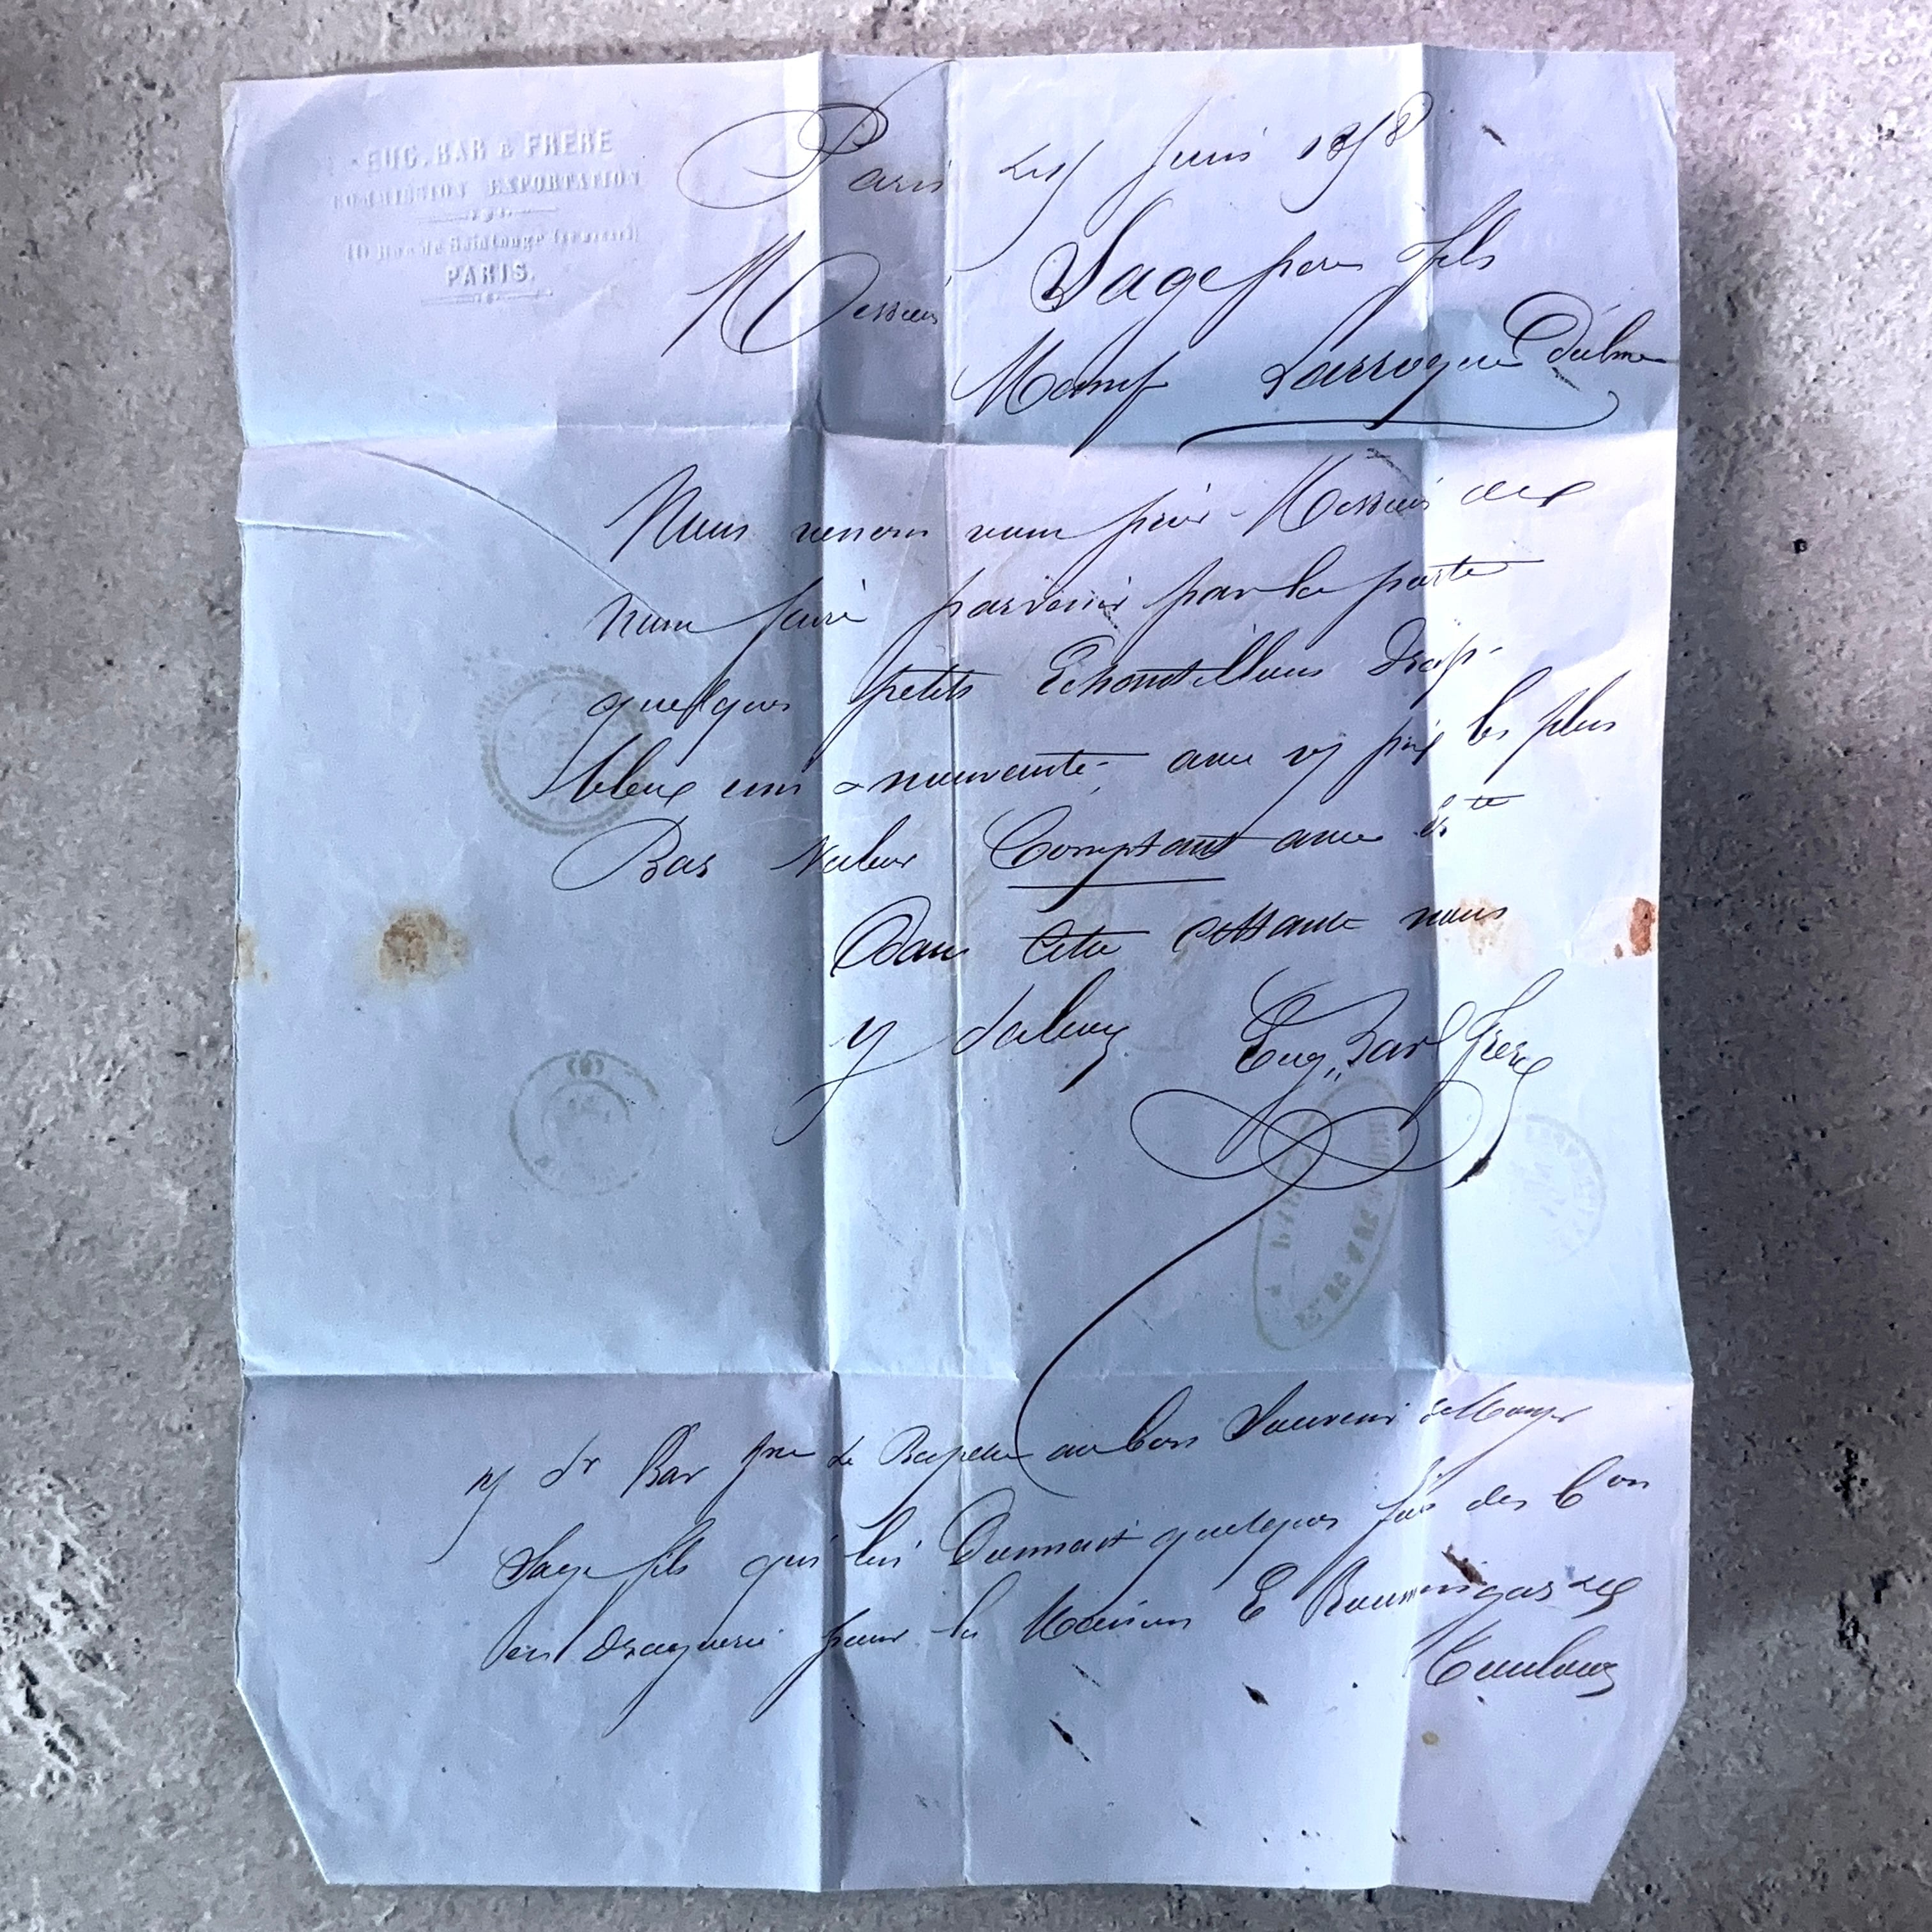 EUG. BAR & FRERE
COMMISSION EXPORTATION
10 Rue de Saintonge (au marais)
PARIS.
Paris Juin 1858
Messieurs Sage pere fils
Manuf Larroque D'olme
Nous venons vous prier Messieurs de
nous faire parvenir par la poste
quelques petits Echantillons Drap
bleux unis & nouveauté avec vos prix les plus
Bas Valeur Comptant avec
Dans cette attente nous
vs saluons Eug. Bar & frère
n/ Sr Bar jne se Rapelle au bon Souvenir de Monsr
Sage fils qui lui Donnait quelques fois des Con
en draperie pour la Maison E de
Toulouse